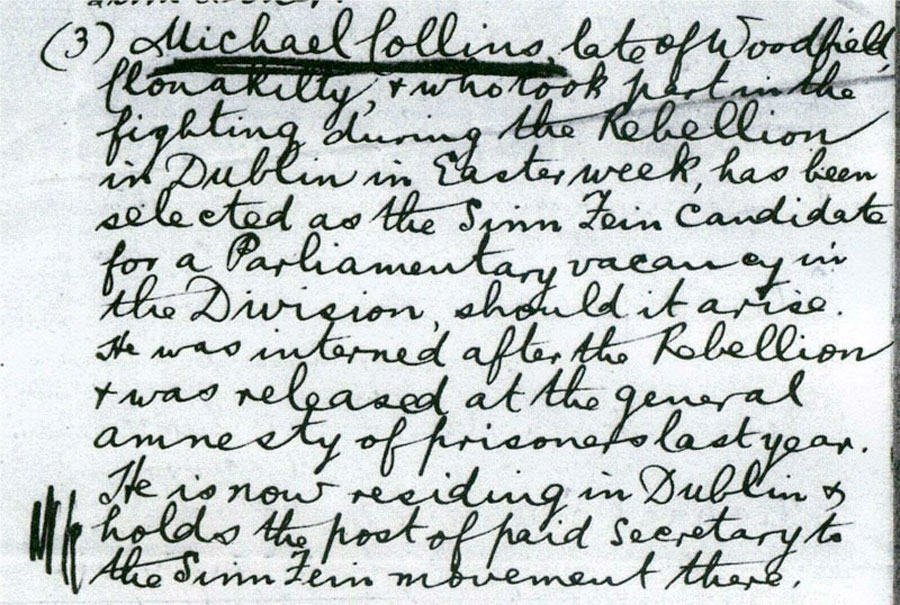 (3) Michael Collins, late of Woodfield,
Clonakilty, & who took part in the
fighting during the Rebellion
in Dublin in Easter week, has been
selected as the Sinn Fein Candidate
for a Parliamentary vacancy in
the Division, should it arise.
He was interned after the Rebellion
& was released at the general
amnesty of prisoners last year.
He is now residing in Dublin &
holds the post of paid Secretary to
the Sinn Fein movement there.